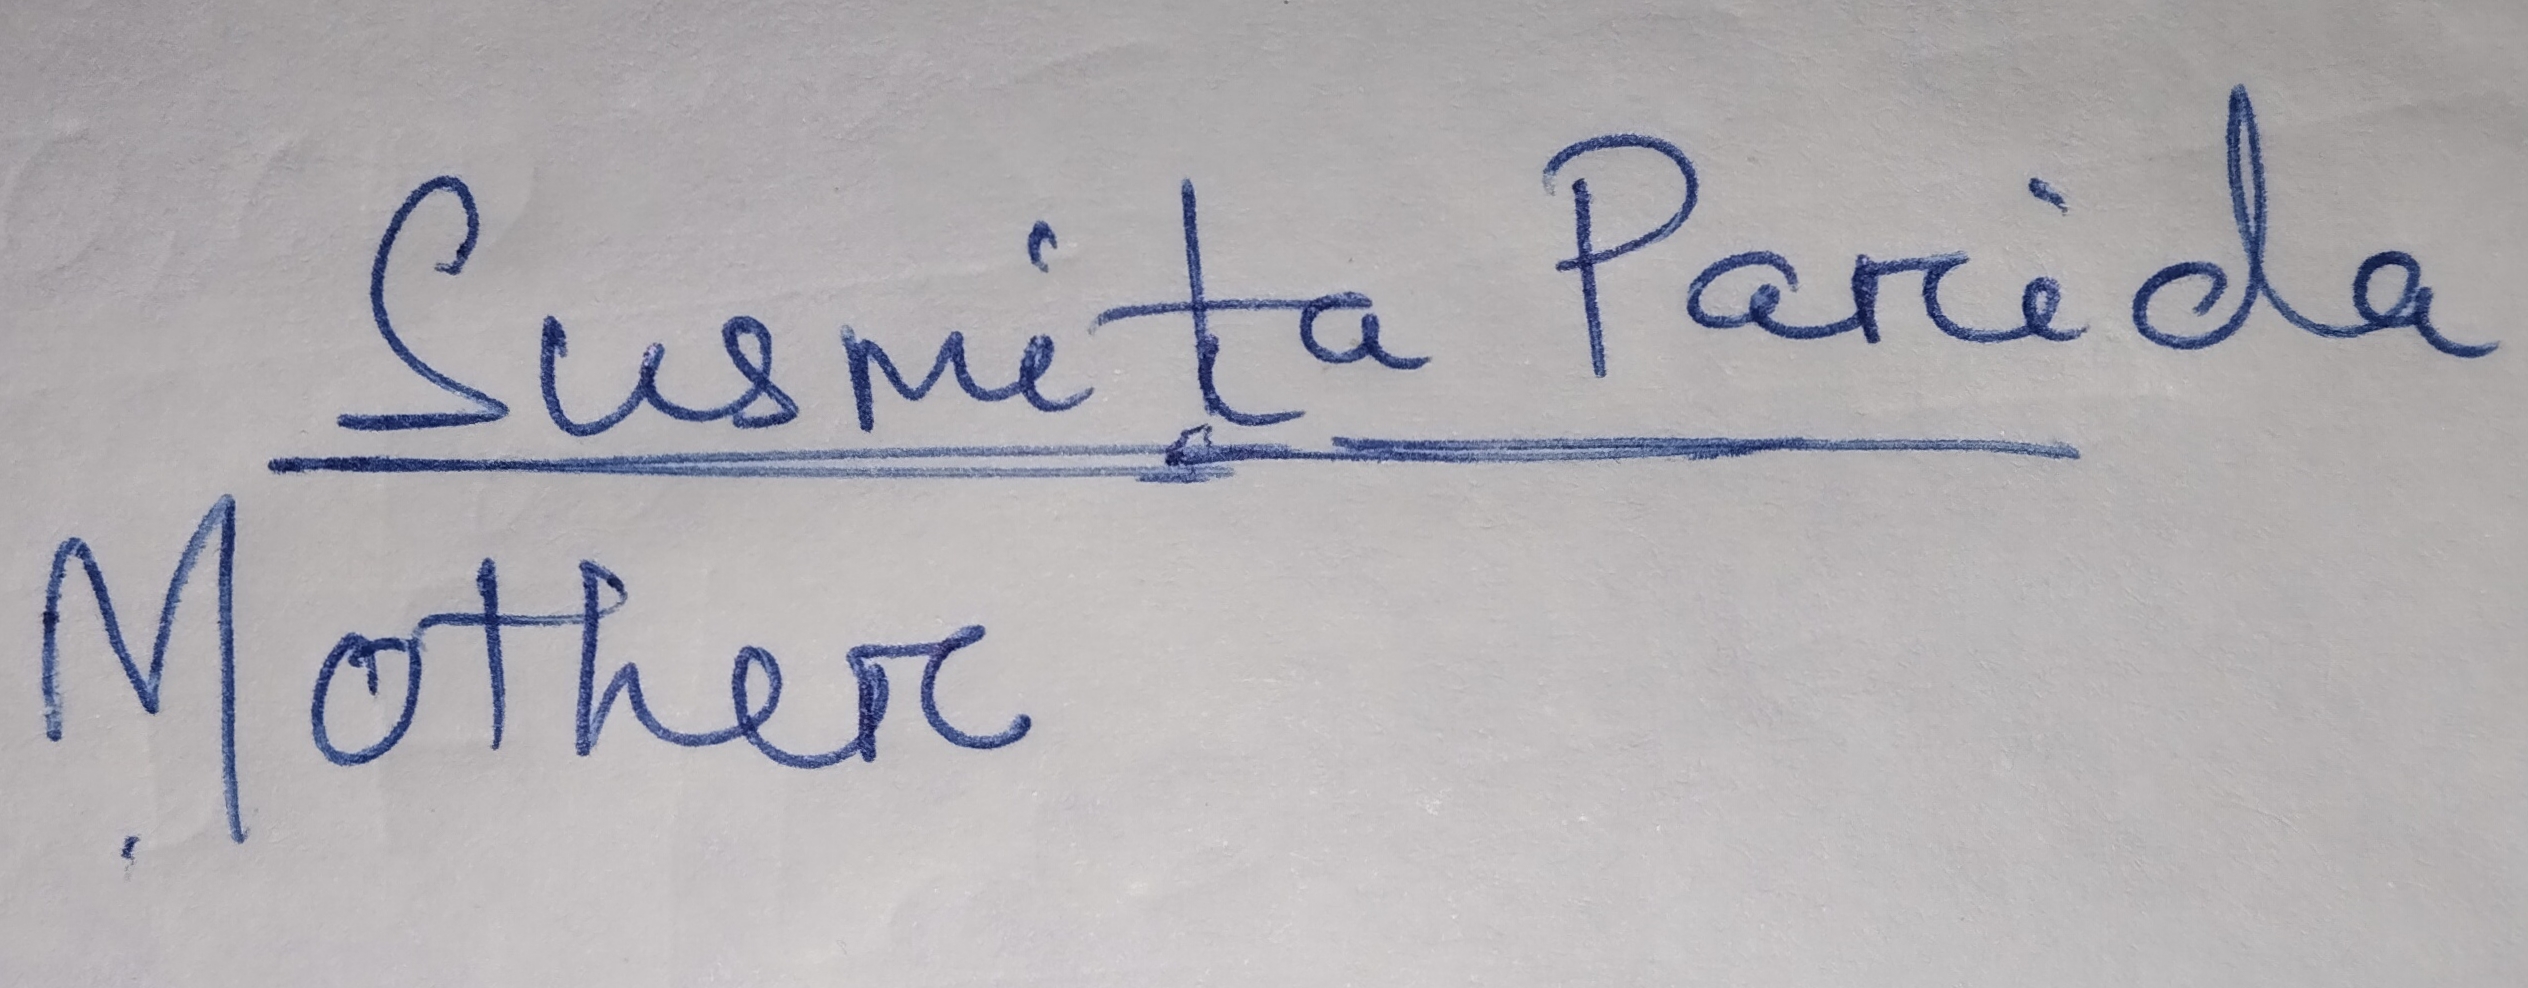 Susmita Parida
Mother